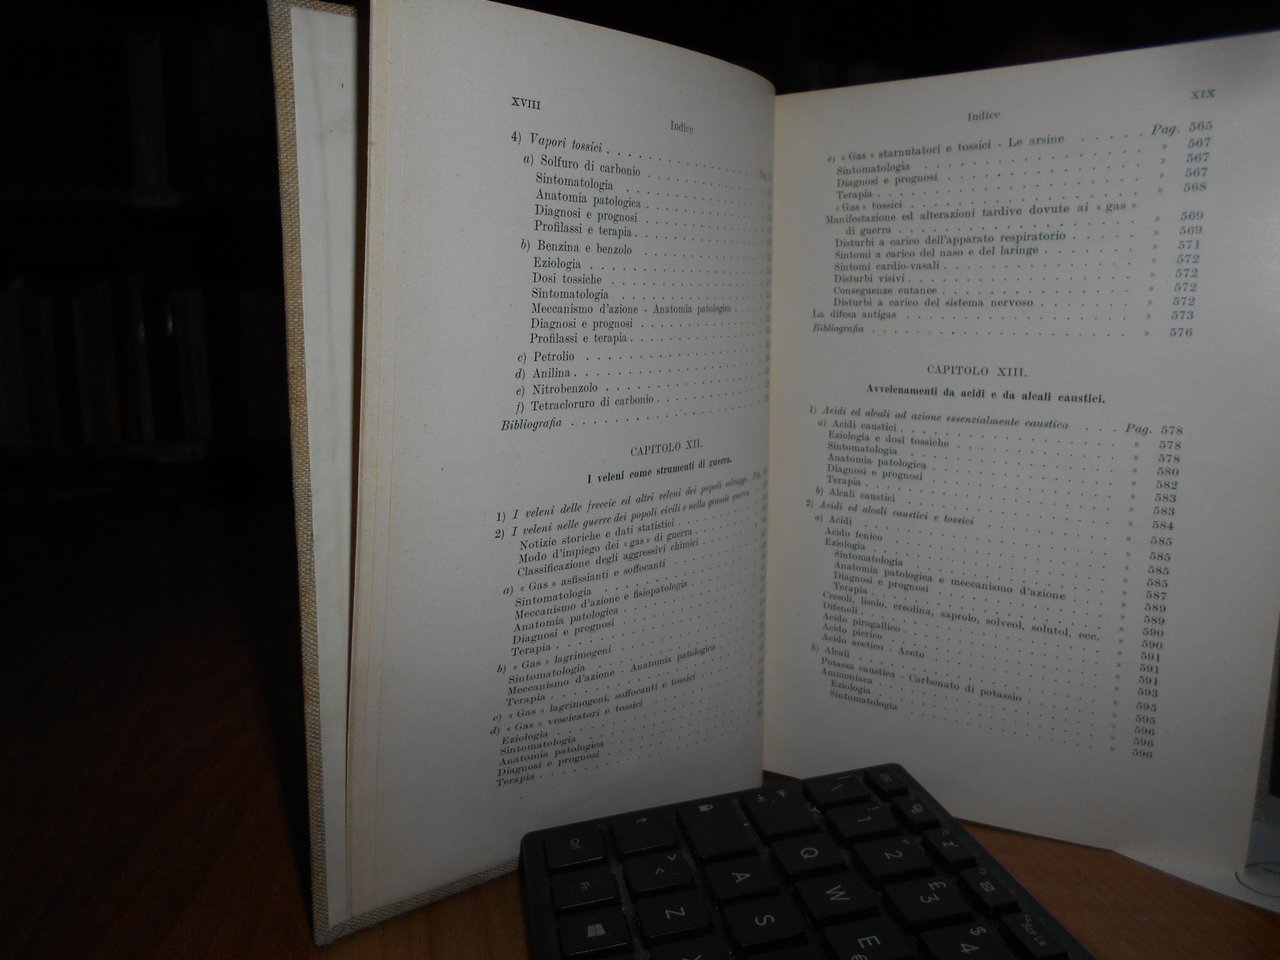 XVIII
Indice
4) Vapori tossici
a) Solfuro di carbonio
Sintomatologia
Anatomia patologica
Diagnosi e prognosi
Profilassi e terapia
b) Benzina e benzolo
Eziologia
Dosi tossiche
Sintomatologia
Meccanismo d'azione - Anatomia patologica
Diagnosi e prognosi
Profilassi e terapia
c) Petrolio
d) Anilina
e) Nitrobenzolo
f) Tetracloruro di carbonio
Bibliografia
CAPITOLO XII.
I veleni come strumenti di guerra.
1) I veleni delle freccie ed altri veleni dei popoli selvaggi
2) I veleni nelle guerre dei popoli civili e nella grande guerra
Notizie storiche e dati statistici
Modo d'impiego dei « gas » di guerra
Classificazione degli aggressivi chimici
a) « Gas » asfissianti e soffocanti
Sintomatologia
Meccanismo d'azione e fisiopatologia
Anatomia patologica
Diagnosi e prognosi
Terapia
b) « Gas » lagrimogeni
Sintomatologia
Meccanismo d'azione - Anatomia patologica
Terapia
c) « Gas » lagrimogeni, soffocanti e tossici
d) « Gas » vescicatori e tossici
Eziologia
Sintomatologia
Anatomia patologica
Diagnosi e prognosi
Terapia
XIX
Indice
e) « Gas » starnutatori e tossici - Le arsine Pag. 565
Sintomatologia » 567
Diagnosi e prognosi » 567
Terapia » 567
« Gas » tossici » 568
Manifestazione ed alterazioni tardive dovute ai « gas »
di guerra » 569
Disturbi a carico dell'apparato respiratorio » 569
Sintomi a carico del naso e del laringe » 571
Sintomi cardio-vasali » 572
Disturbi visivi » 572
Conseguenze cutanee » 572
Disturbi a carico del sistema nervoso » 572
La difesa antigas » 573
Bibliografia » 576
CAPITOLO XIII.
Avvelenamenti da acidi e da alcali caustici.
1) Acidi ed alcali ad azione essenzialmente caustica Pag. 578
a) Acidi caustici » 578
Eziologia e dosi tossiche » 578
Sintomatologia » 580
Anatomia patologica » 582
Diagnosi e prognosi » 583
Terapia » 583
b) Alcali caustici » 584
2) Acidi ed alcali caustici e tossici » 585
a) Acidi » 585
Acido fenico » 585
Eziologia » 585
Sintomatologia » 587
Anatomia patologica e meccanismo d'azione » 589
Diagnosi e prognosi » 589
Terapia » 590
Cresoli, lisolo, creolina, saprolo, solveol, solutol, ecc. » 590
Difenoli » 591
Acido pirogallico » 591
Acido picrico » 591
Acido acetico - Aceto » 593
b) Alcali » 595
Potassa caustica - Carbonato di potassio » 595
Ammoniaca » 596
Eziologia » 596
Sintomatologia » 596
Q
1
2
A
W
3
E
Z
S
$ 4